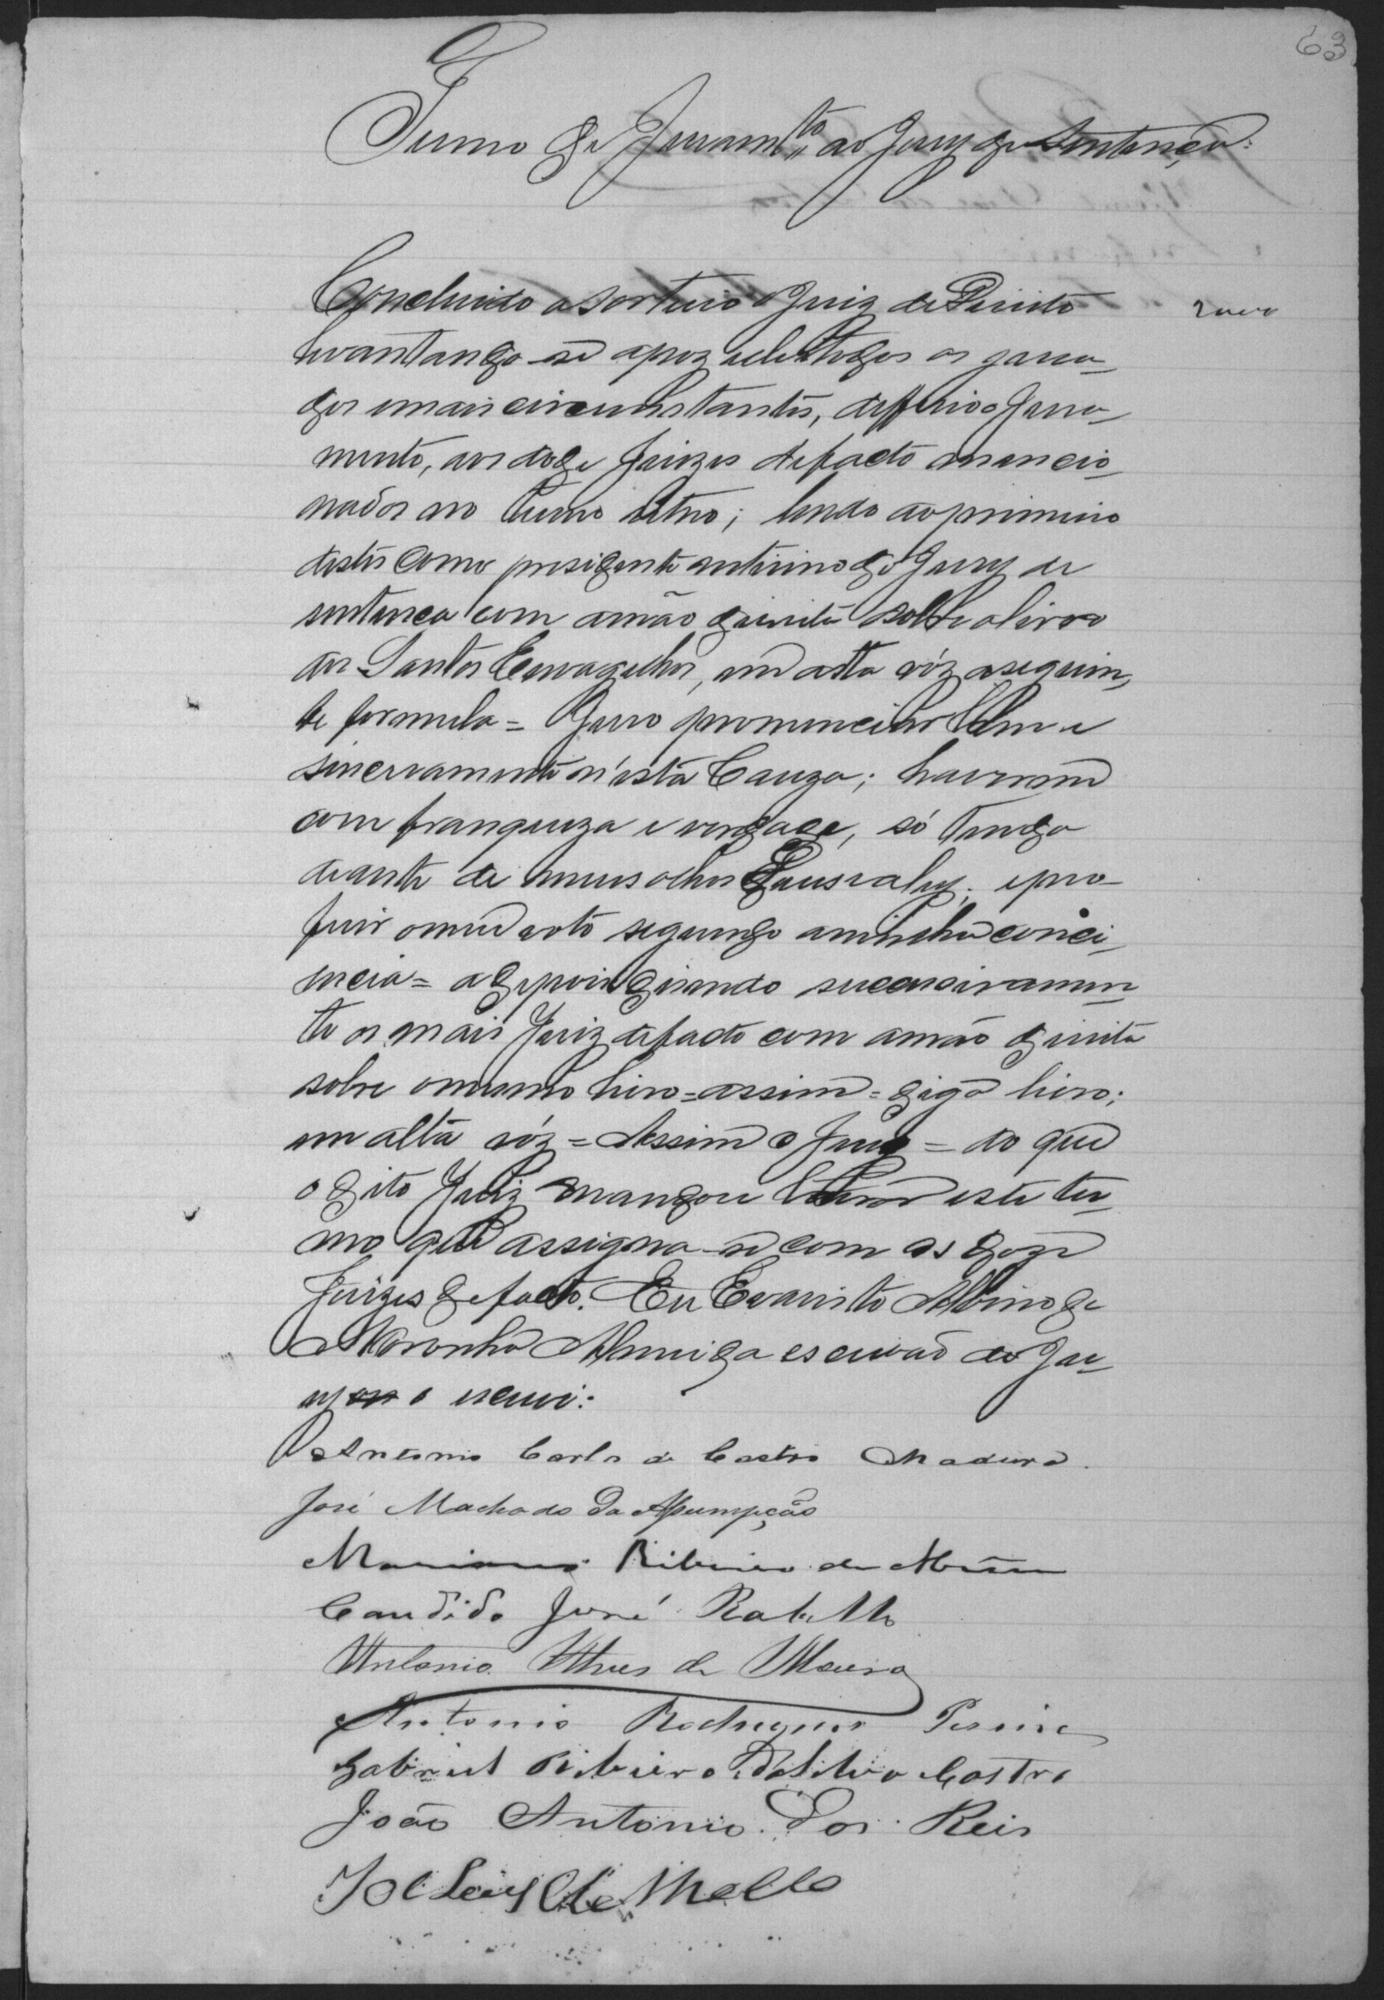 63
Termo de Juram.to ao Jury de Sentença:
Concluido o sorteio o Juiz de Direito
levantando-se apoz elle todos os jura-
dos e mais circunstantes, defferio o Jura-
mento, aos doze Juizes de facto mencio-
nados no termo retro; lendo ao primeiro
destes como presidente interino do Jury de
sentença com a mão direita sobre o livro
dos Santos Evangelhos, em alta vóz a seguin-
te formula = Juro pronunciar bem e
sinceramente n'esta Cauza; haverme
com franqueza e verdade, só tendo
deante de meus olhos Deus e a ley; e pro-
ferir o meu voto segundo a minha conci-
encia = e depois dizendo successivamen-
te os mais Juiz de facto com a mão direita
sobre o mesmo livro = assim = digo livro;
em alta vóz = Assim o Juro = do que
o dito Juiz mandou lavrar este ter-
mo que assigna-se com os doze
Juizes de facto. Eu Evaristo Albino de
Noronha Almeida escrivão do Ju-
ry o escrevi:
Antonio Carlos de Castro Madura.
José Machado da Assumpção
Marianno Ribeiro de Abreu
Candido José Rabello
Antonio Alves de Moura
Antonio Rodrigues Pereira
Gabriel Ribeiro da Silva Castro
João Antonio dos Reis
José Luiz de Mello